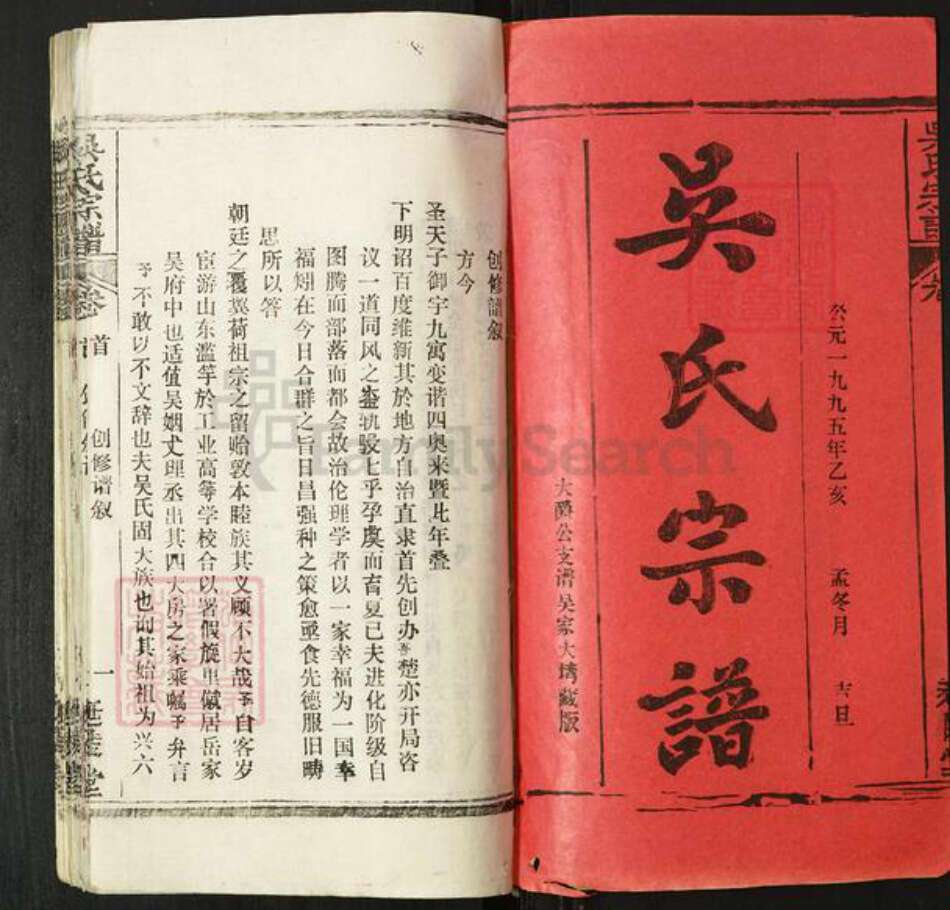 吴氏宗譜
公元一九九五年乙亥 孟冬月 吉旦
吳氏宗譜
大爵公支谱吴家大塆藏版
创修谱叙
方今
圣天子御宇九寓变谐四奥来暨比年叠
下明诏百度维新其於地方自治直隶首先创办吾楚亦开局咨
议一道同风之盛轨骎七乎孕虞而育夏已夫进化阶级自
图腾而部落而都会故治伦理学者以一家幸福为一国幸
福矧在今日合群之旨日昌强种之策愈亟食先德服旧畴
思所以答
朝廷之覆冀荷祖宗之留贻敦本睦族其义顾不大哉予自客岁
宦游山东滥竽於工业高等学校合以署假旋里僦居岳家
吴府中也适值吴姻丈理丞出其四大房之家乘嘱予弁言
予不敢以不文辞也夫吴氏固大族也而其始祖为兴六
吴氏宗譜 卷首 创修谱叙 一
FamilySearch